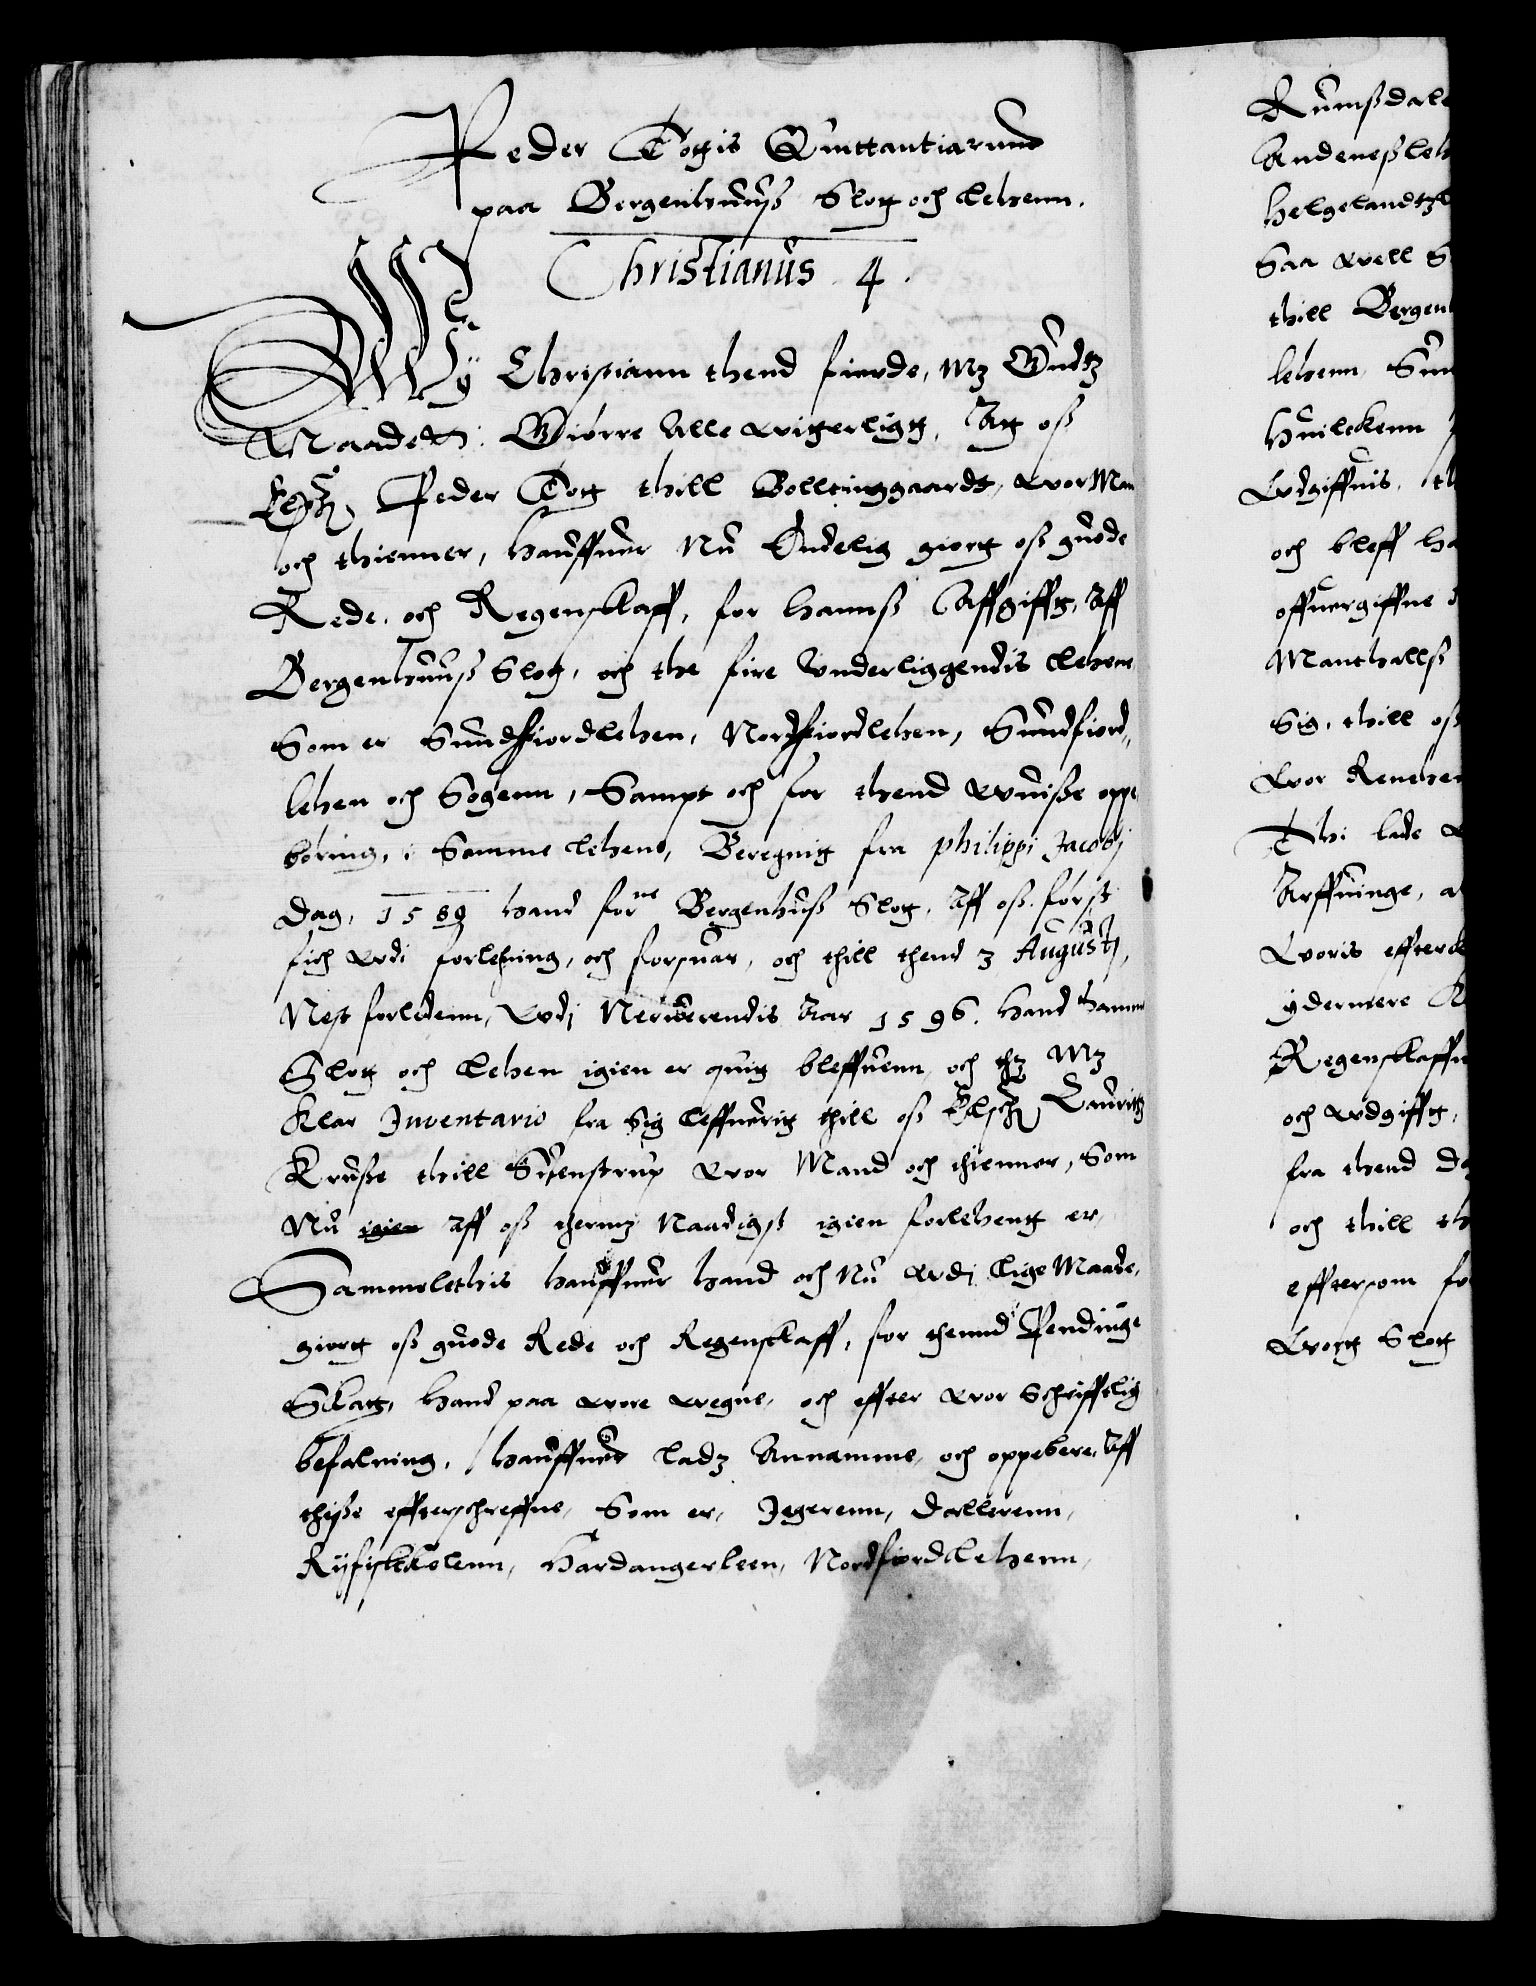 Peder Togis Quittantiarumb
paa Bergenhuuß Slott och Lehenn.
Christianus 4.
Wy Christiann thend fierde, Mz Gudtz
Naade etc: Giørre Alle witterligtt, Att oß
Elsch: Peder Tott thill Bolltinggaardt, wor Man
och thienner, Haffuer Nu Endelig giort oß guode
Rede, och Regenskaff, for hannß Affgifft, Aff
Bergenhuuß Slott, och the fire Underliggendis Lehene
Som er Sundfiordlehen, Nordfiordlehen, Sundfiord,,
lehen och Sogenn, Sampt och for thend wuisße oppe
børing, i Samme Lehene, Beregnit fra Philippi Jacobj
dag, 1589 hand forne Bergenhuß Slott, Aff oß først
fich wdi forlehning, och forsuar, och thill thend 3 Augustj,
Nest forledenn, wdj Nerwerendis Aar 1596. Hand thamme
Slott och Lehen igien er quit bleffuenn, och thz Mz
Klar Inventario fra sig leffuerit thill oß Elsch: Lauritz
Kruße thill Suenstrup wor Mand och thienner, Som
Nu igien Aff oß thermz Naadigst igien forlehent er,
Sammelethis haffuer hand och Nu wdi Lige Maade,
giort oß guode Rede och Regenskaff, for thennd Pendinge
Skatt, hand paa wore wegne, och effter wor Schrifftlig
befalning, haffuer ladz Annamme, och oppebere, Aff
thiße effterschreffne, Som er, Jegerenn, Dallerenn,
Ryfischkelenn, Hardangerleen, Nordfiordlehenn,
Rumßdale
Andeneßleh
Helgelandtz
Saa well S
thill Bergen
lehenn, Sun
Huilckenn
Wdgiffuis, th
och bleff ha
offuergiffne
Manthallß
Sig, thill oß
Wor Rente
Thi lade
Arffuinge, a
Woris effterk
ydermere K
Regenskaff
och wdgifft,
fra thend da
och thill th
effterschom fo
Wortt Slott